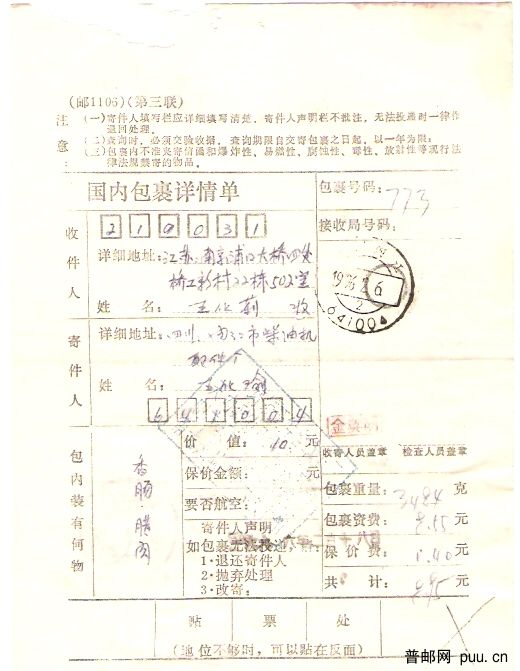 (邮1106)(第三联)
注意:
(一)寄件人填写栏应详细填写清楚,寄件人声明栏不批注,无法投递时一律作
退回处理。
(二)查询时,必须交验收据,查询期限自交寄包裹之日起,以一年为限;
(三)包裹内不准夹寄信函和爆炸性、易燃性、腐蚀性、毒性、放射性等现行法
律法规禁寄的物品。
国内包裹详情单
包裹号码: 773
接收局号码:
收件人
210031
详细地址:江苏南京浦口大桥四处
桥工新村22栋502室
姓名: 王化 收
寄件人
详细地址:四川 内江市柴油机
配件厂
姓名: 王化
641004
641004
包内装有何物
香肠、腊肉
价值: 10 元
保价金额: 元
要否航空:
寄件人声明
如包裹无法投递,请:
1·退还寄件人
2·抛弃处理
3·改寄:
收寄人员盖章 检查人员盖章
包裹重量: 3484 克
包裹资费: 8.55 元
保价费: 0.40 元
共计: 8.95 元
贴票处
(地位不够时,可以贴在反面)
普邮网 puu.cn